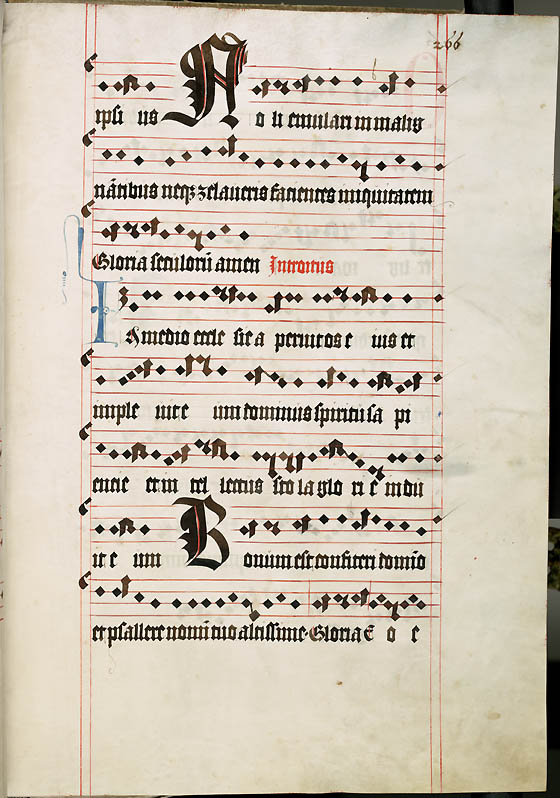 266
ipsi ius No li emulari in malig
nātibus neqꝫ zelaueris facientes iniquitatem
Gloria seculorū amen Introitus
In medio eccle sie a peruit os e ius et
imple uit e um dominus spiritu sa pi
encie et in tel lectus sto la glo ri e indu
it e um Bonum est confiteri domīo
et psallere nomī tuo altissime Gloria E o e